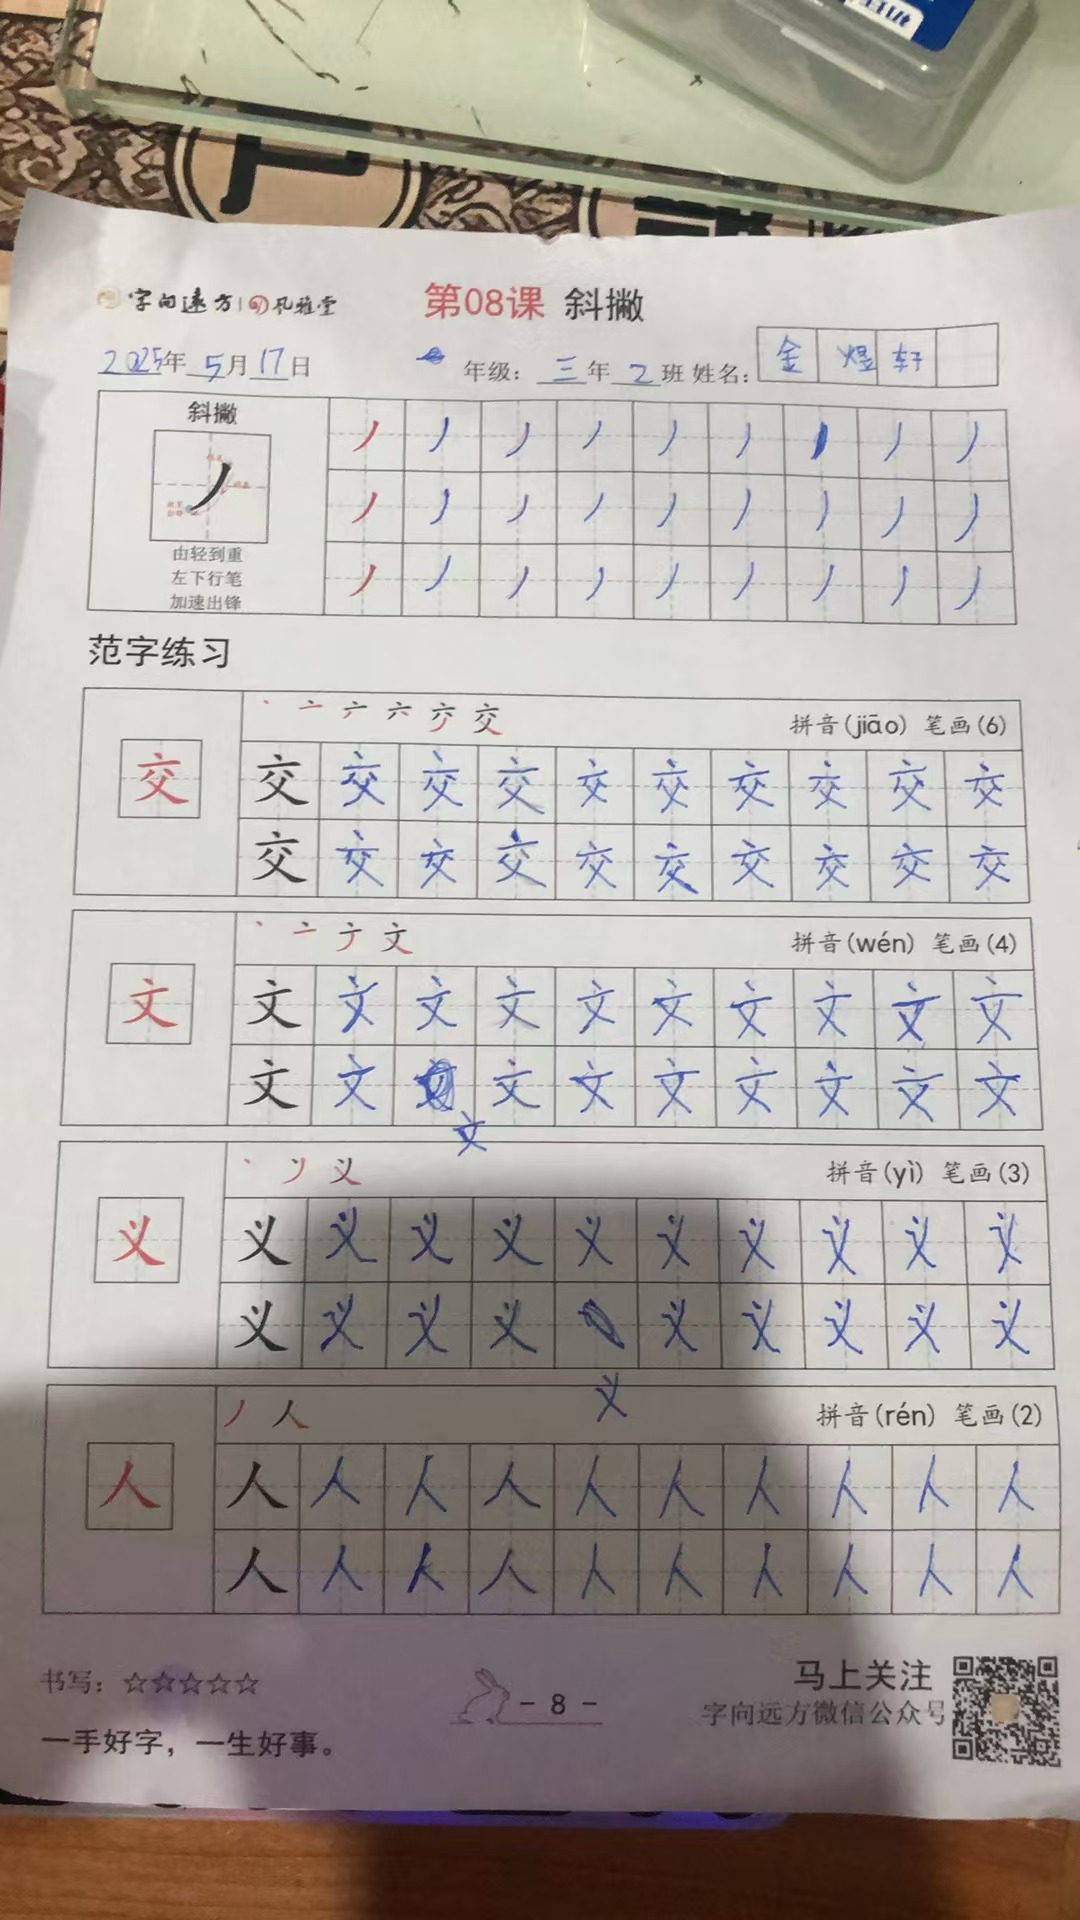 字向远方 孔雅堂
第08课 斜撇
2025年 5月17日 年级：三年2班 姓名：金煜轩
斜撇
由轻到重
左下行笔
加速出锋
范字练习
拼音(jiāo) 笔画(6)
交 交 交 交 交 交 交 交 交 交 交
交 交 交 交 交 交 交 交 交 交
拼音(wén) 笔画(4)
文 文 文 文 文 文 文 文 文 文 文
文 文 文 文 文 文 文 文 文
文
拼音(yì) 笔画(3)
义 义 义 义 义 义 义 义 义 义 义
义 义 义 义 义 义 义 义 义
义
拼音(rén) 笔画(2)
人 人 人 人 人 人 人 人 人 人 人
人 人 人 人 人 人 人 人 人 人
书写：☆☆☆☆☆
一手好字，一生好事。
- 8 -
马上关注
字向远方微信公众号